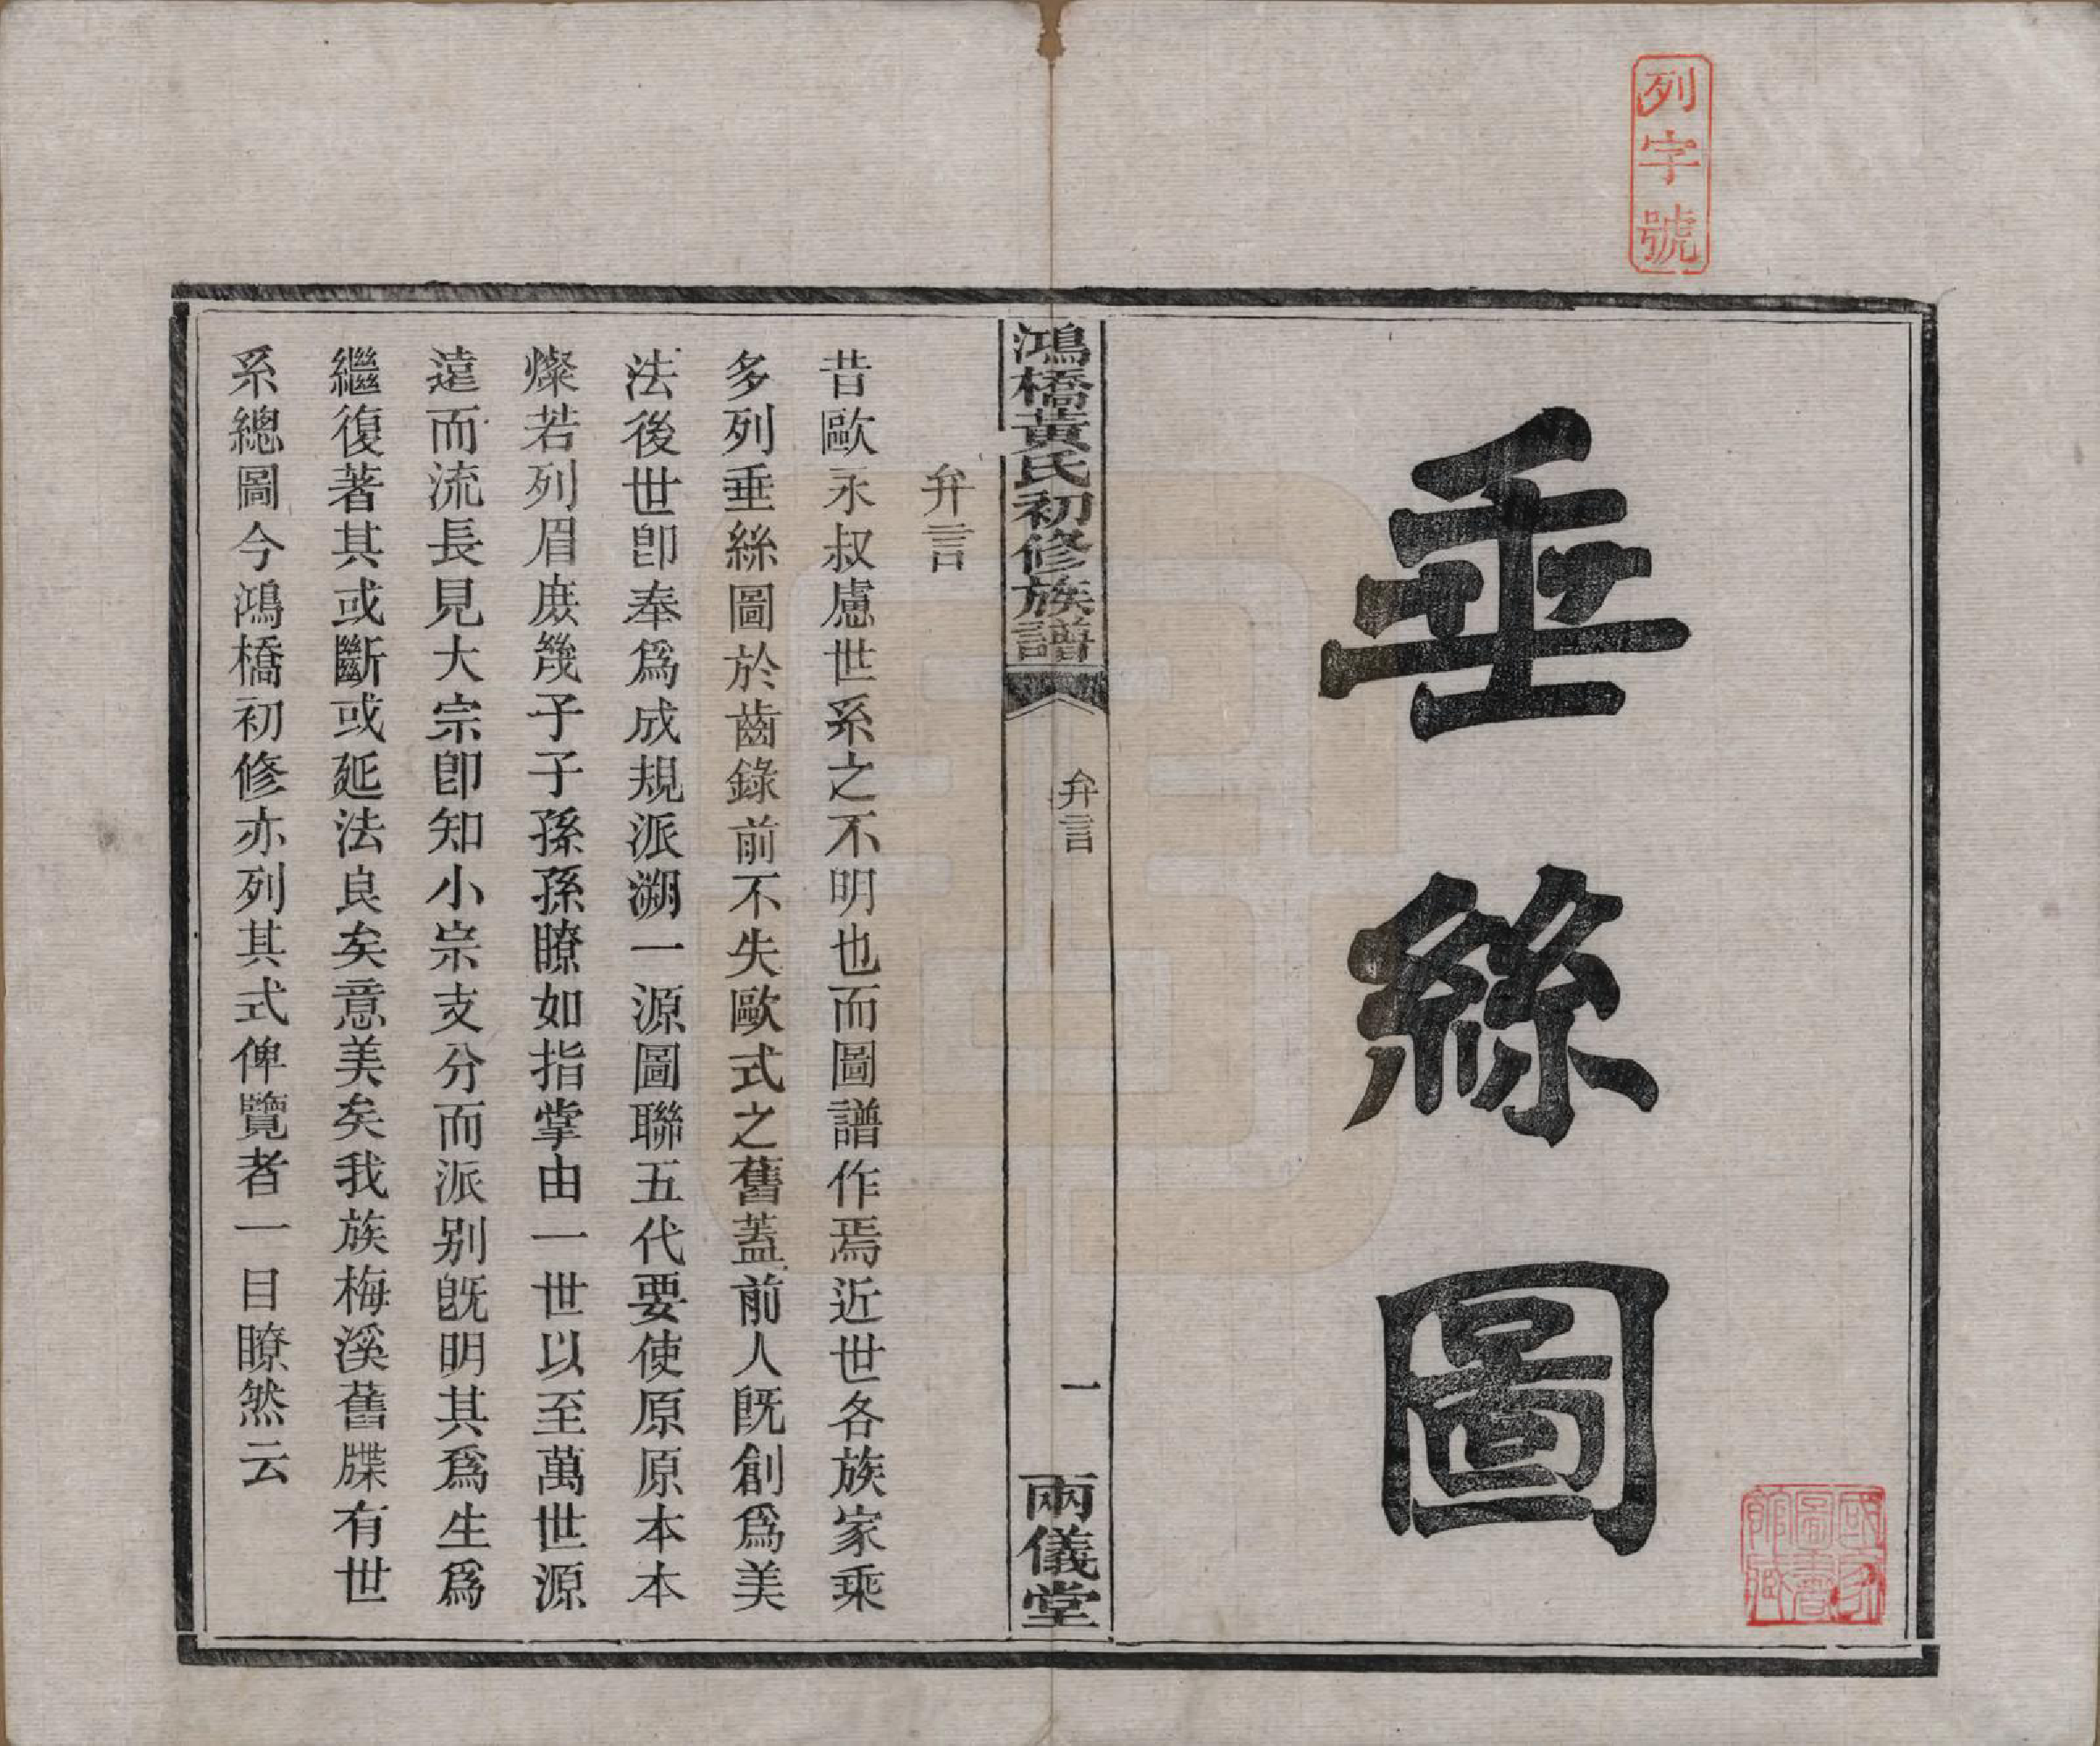 列字號
垂絲圖
國家圖書館藏
鴻橋黃氏初修族譜
弁言
一
兩儀堂
弁言
昔歐永叔慮世系之不明也而圖譜作焉近世各族家乘
多列垂絲圖於齒錄前不失歐式之舊蓋前人既創爲美
法後世卽奉爲成規派溯一源圖聯五代要使原原本本
燦若列眉庻幾子子孫孫瞭如指掌由一世以至萬世源
遠而流長見大宗卽知小宗支分而派别旣明其爲生爲
繼復著其或斷或延法良矣意美矣我族梅溪舊牒有世
系總圖今鴻橋初修亦列其式俾覽者一目瞭然云